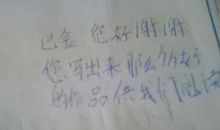 巴金 您好谢谢
您写出来那么多好
的作品供我们阅读